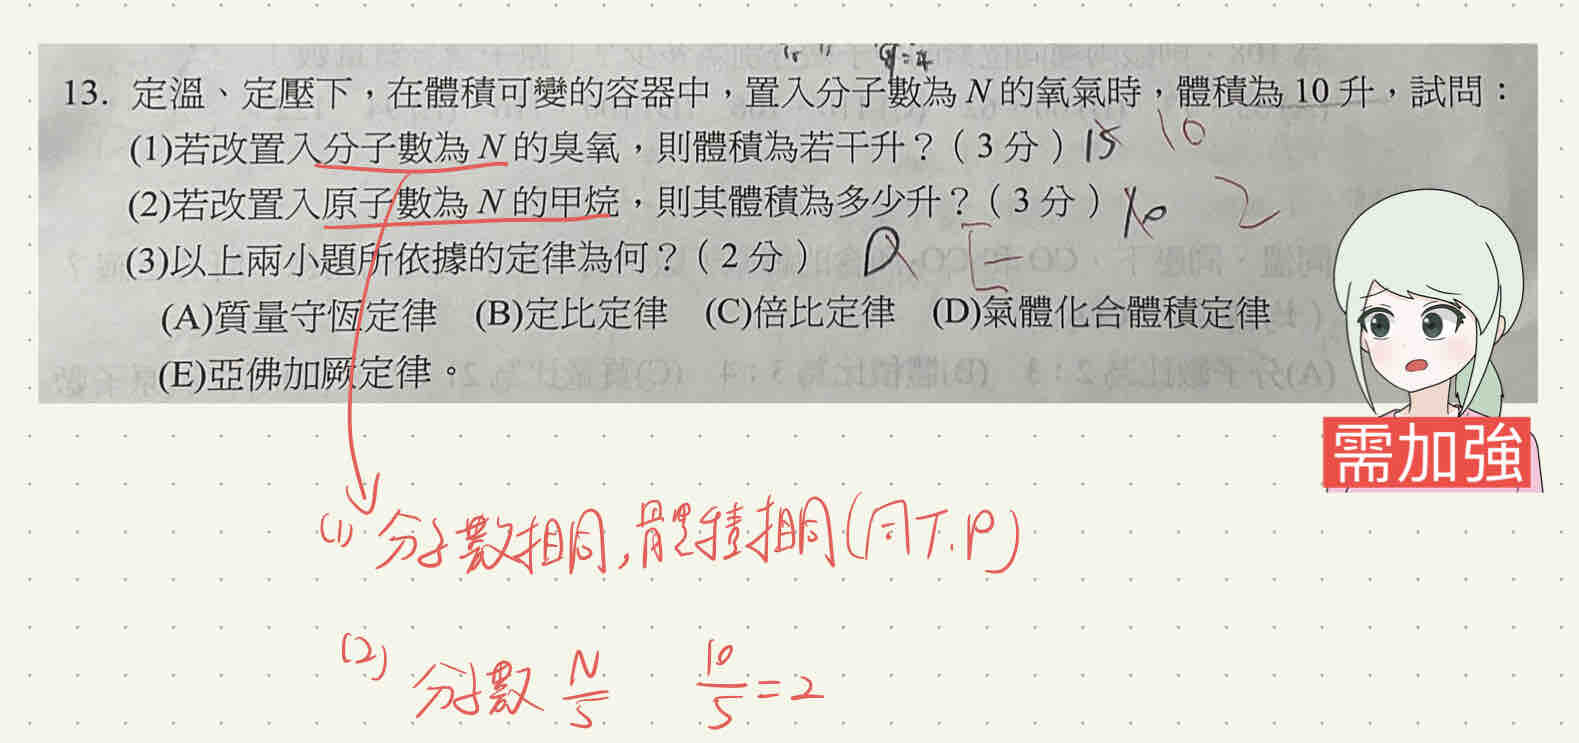 13. 定溫、定壓下，在體積可變的容器中，置入分子數為 N 的氧氣時，體積為 10 升，試問：
(1)若改置入分子數為 N 的臭氧，則體積為若干升？（3 分） 15 10
(2)若改置入原子數為 N 的甲烷，則其體積為多少升？（3 分） 10 2
(3)以上兩小題所依據的定律為何？（2 分） D E
(A)質量守恆定律 (B)定比定律 (C)倍比定律 (D)氣體化合體積定律
(E)亞佛加厥定律。
需加強
(1) 分子數相同,體積相同(同T.P)
(2) 分子數 N/5 10/5 = 2